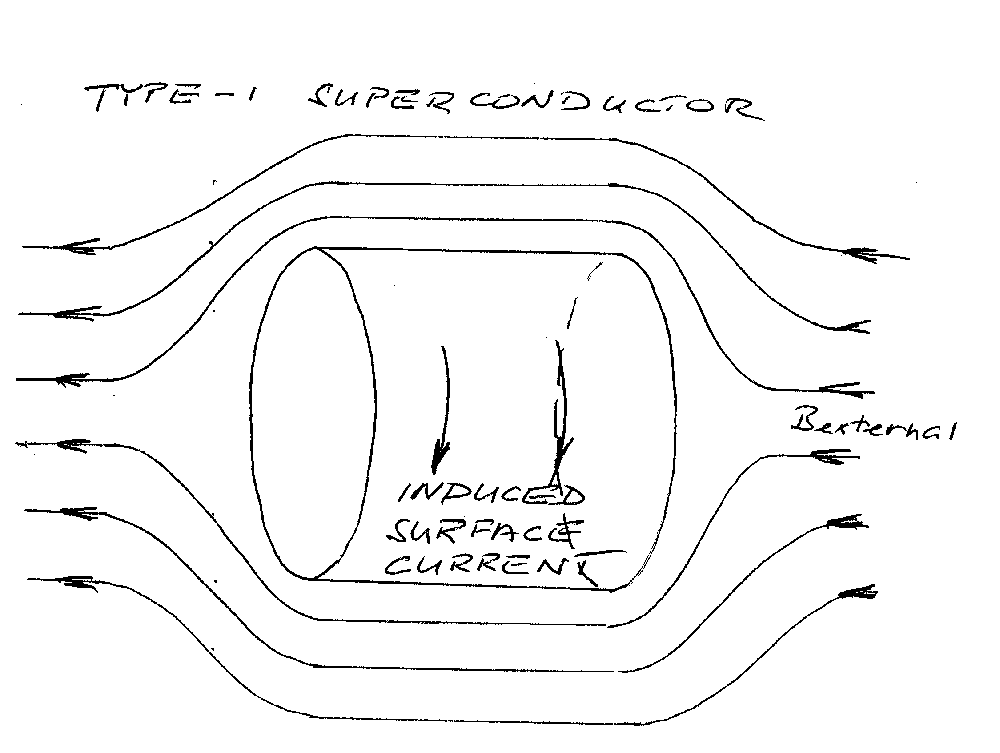 TYPE-1 SUPERCONDUCTOR
Bexternal
INDUCED
SURFACE
CURRENT